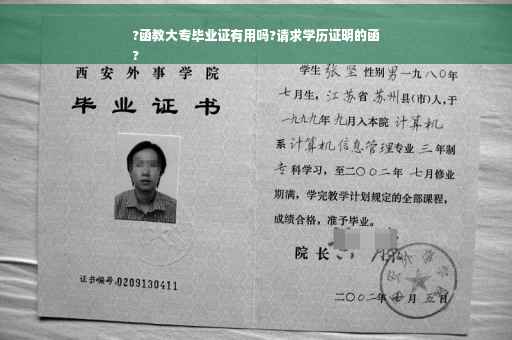 ?函教大专毕业证有用吗?请求学历证明的函
?
西安外事学院
毕业证书
证书编号:0209130411
学生 张坚 性别 男 一九八〇年
七月生, 江苏省 苏州县(市)人,于
一九九九年九月入本院 计算机
系 计算机信息管理专业 三 年制
专科学习,至二〇〇二年 七月修业
期满,学完教学计划规定的全部课程,
成绩合格,准予毕业。
院长
二〇〇二年 月五日